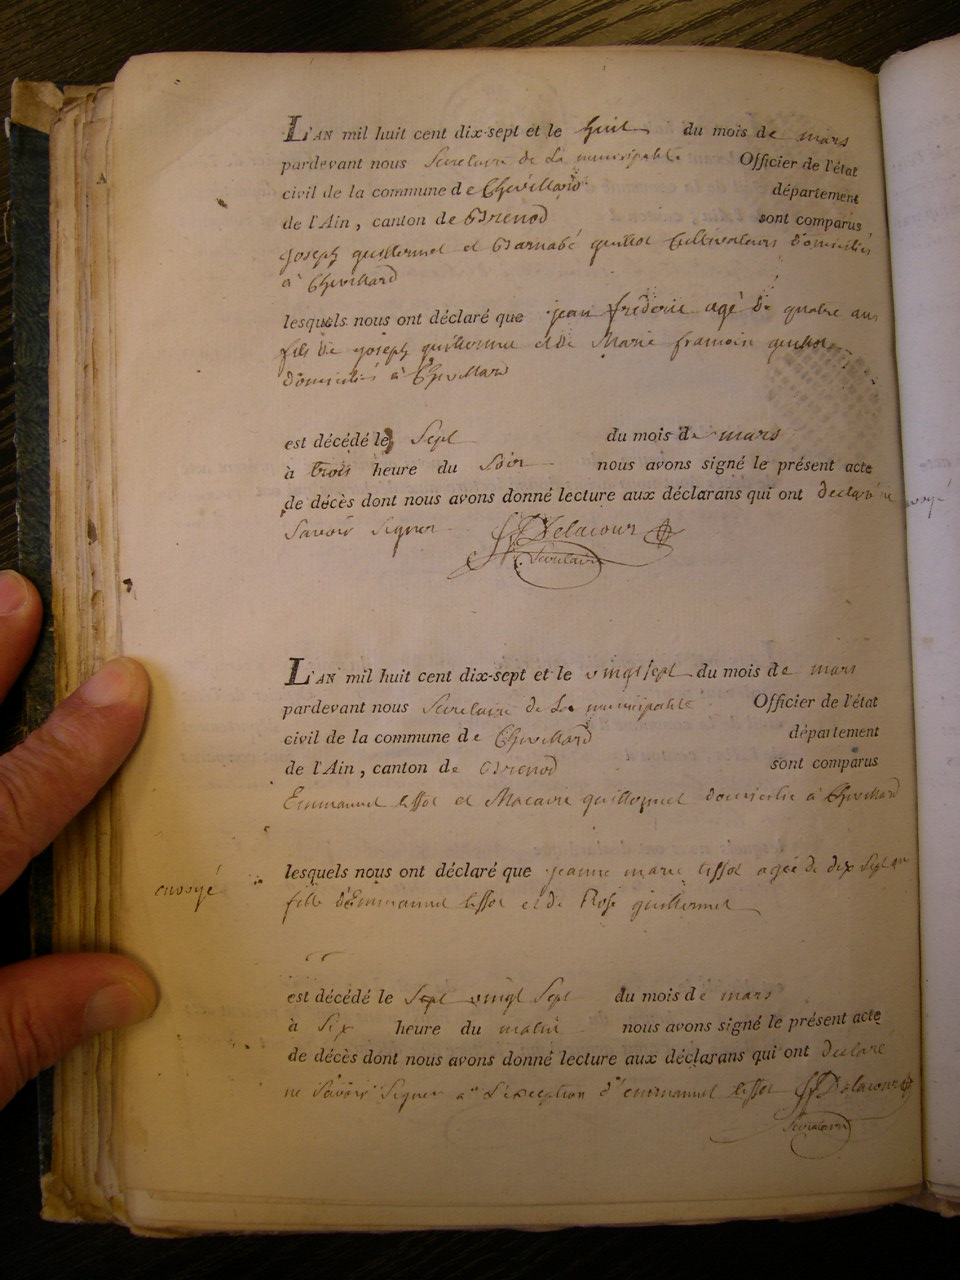 L'AN mil huit cent dix-sept et le huit du mois de mars
pardevant nous Secretaire de La municipalité Officier de l'état
civil de la commune de Chevillard département
de l'Ain, canton de Brenod sont comparus
joseph guillermet et Barnabé Cultivateurs Domiciliés
à Chevillard
lesquels nous ont déclaré que jean frederic agé De quatre ans
fils De joseph guillermet et De Marie francoise
Domiciliés à Chevillard
est décédé le Sept du mois de mars
à trois heure du Soir nous avons signé le présent acte
de décès dont nous avons donné lecture aux déclarans qui ont declaré ne
Savoir Signer Delacour
Secretaire
L'AN mil huit cent dix-sept et le vingt sept du mois de mars
pardevant nous Secretaire de La municipalité Officier de l'état
civil de la commune de Chevillard département
de l'Ain, canton de Brenod sont comparus
Emmanuel tissot et Macaire guillermet Domicilié à Chevillard
lesquels nous ont déclaré que jeanne marie tissot agée de dix Sept an
envoyé
fille D'Emmanuel tissot et de Rose guillermet
est décédé le Sept vingt Sept du mois de mars
à Six heure du matin nous avons signé le présent acte
de décès dont nous avons donné lecture aux déclarans qui ont declaré
ne Savoir Signer a L'exception d'emmanuel tissot Delacour
Secretaire